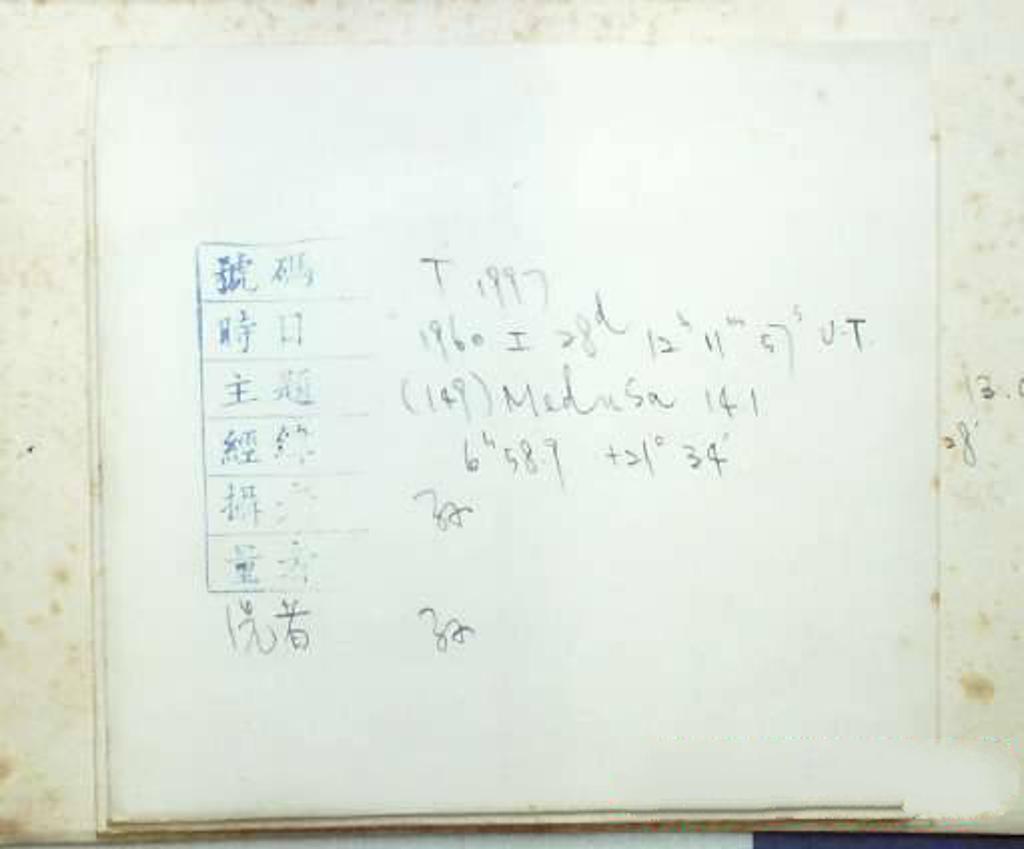 號碼 T 1997
時日 1960 I 28d 12h 11m 57s U.T.
主題 (149) Medusa 141
經緯 6h 58.9 +21° 34′
攝 孙
量
洗者 孙
28′